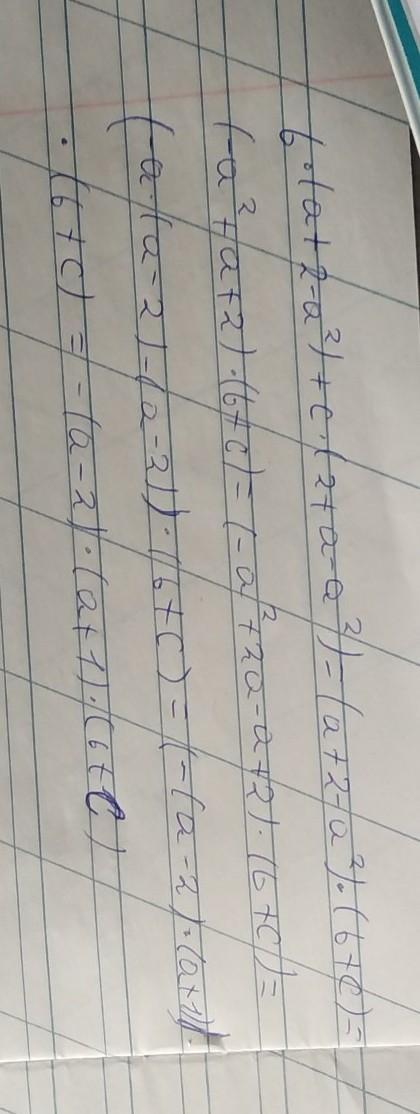 b·(a+2-a²)+c·(2+a-a²)=(a+2-a²)·(b+c)=
(-a²+a+2)·(b+c)=(-a²+2a-a+2)·(b+c)=
(-a·(a-2)-(a-2))·(b+c)=(-(a-2)·(a+1))·
·(b+c)=-(a-2)·(a+1)·(b+c)